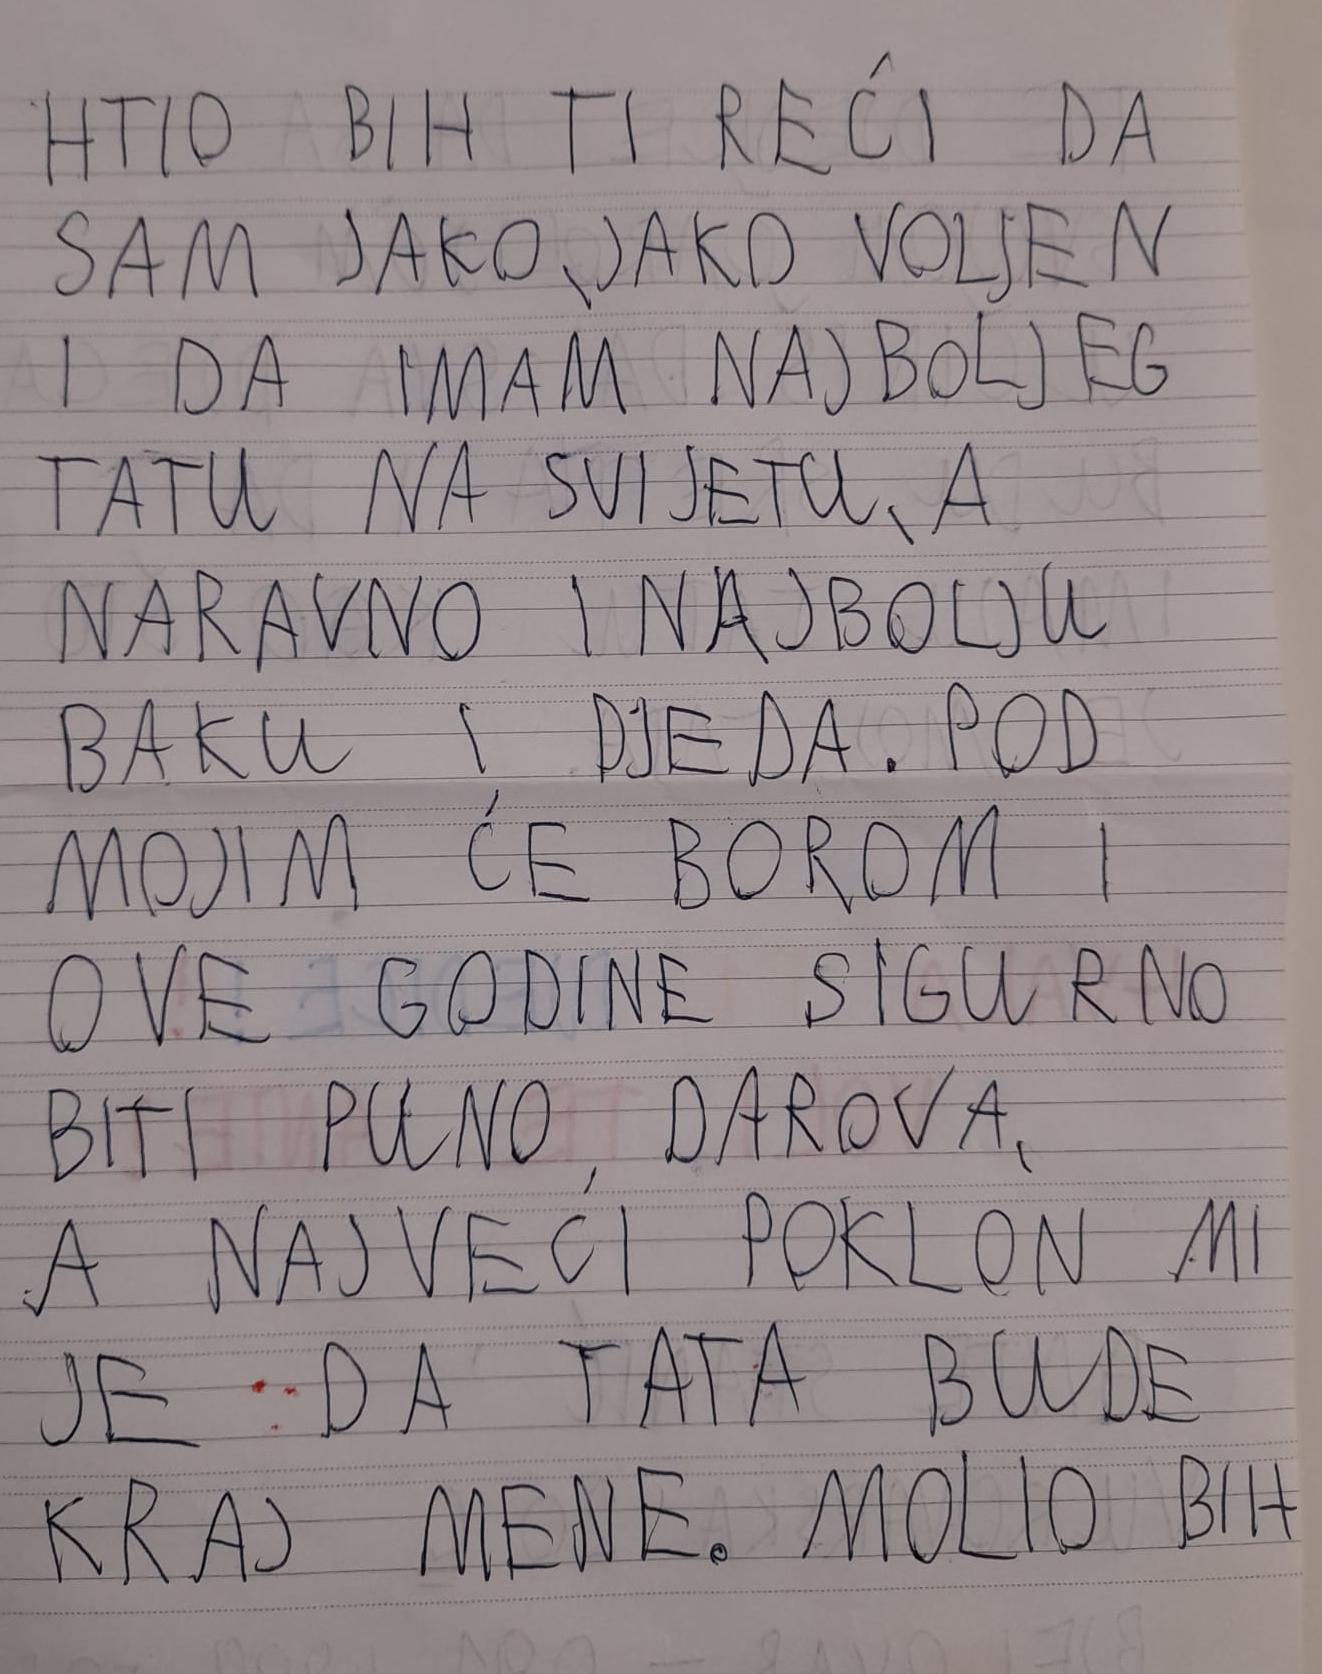 HTIO BIH TI REĆI DA
SAM JAKO, JAKO VOLJEN
I DA IMAM NAJBOLJEG
TATU NA SVIJETU, A
NARAVNO I NAJBOLJU
BAKU I DJEDA. POD
MOJIM ĆE BOROM I
OVE GODINE SIGURNO
BITI PUNO DAROVA,
A NAJVEĆI POKLON MI
JE DA TATA BUDE
KRAJ MENE. MOLIO BIH